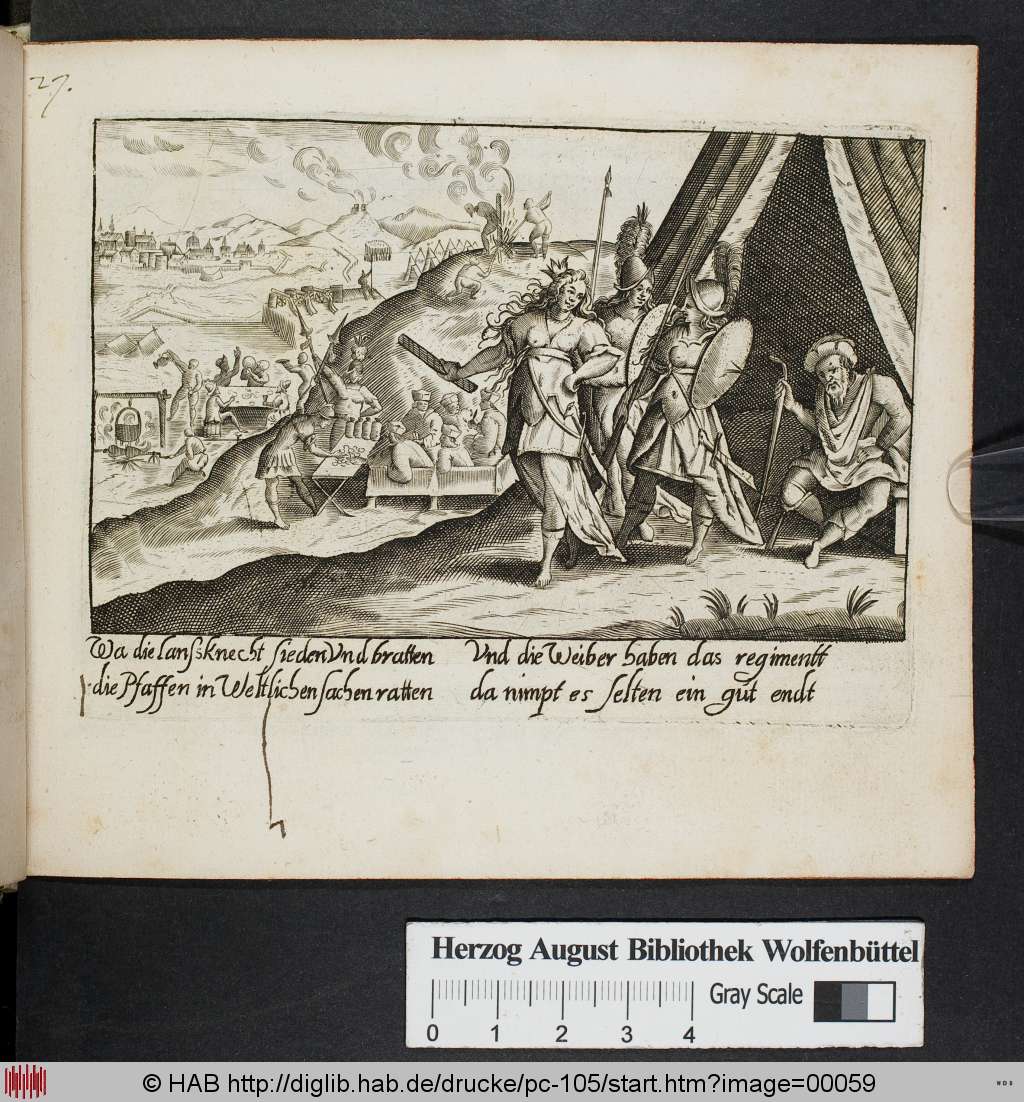 27.
Wa die lanſsknecht ſieden Vnd bratten
die Pfaffen in Weltlichen ſachen ratten
Vnd die Weiber haben das regimentt
da nimpt es ſelten ein gut endt
Herzog August Bibliothek Wolfenbüttel
Gray Scale
0 1 2 3 4
© HAB http://diglib.hab.de/drucke/pc-105/start.htm?image=00059